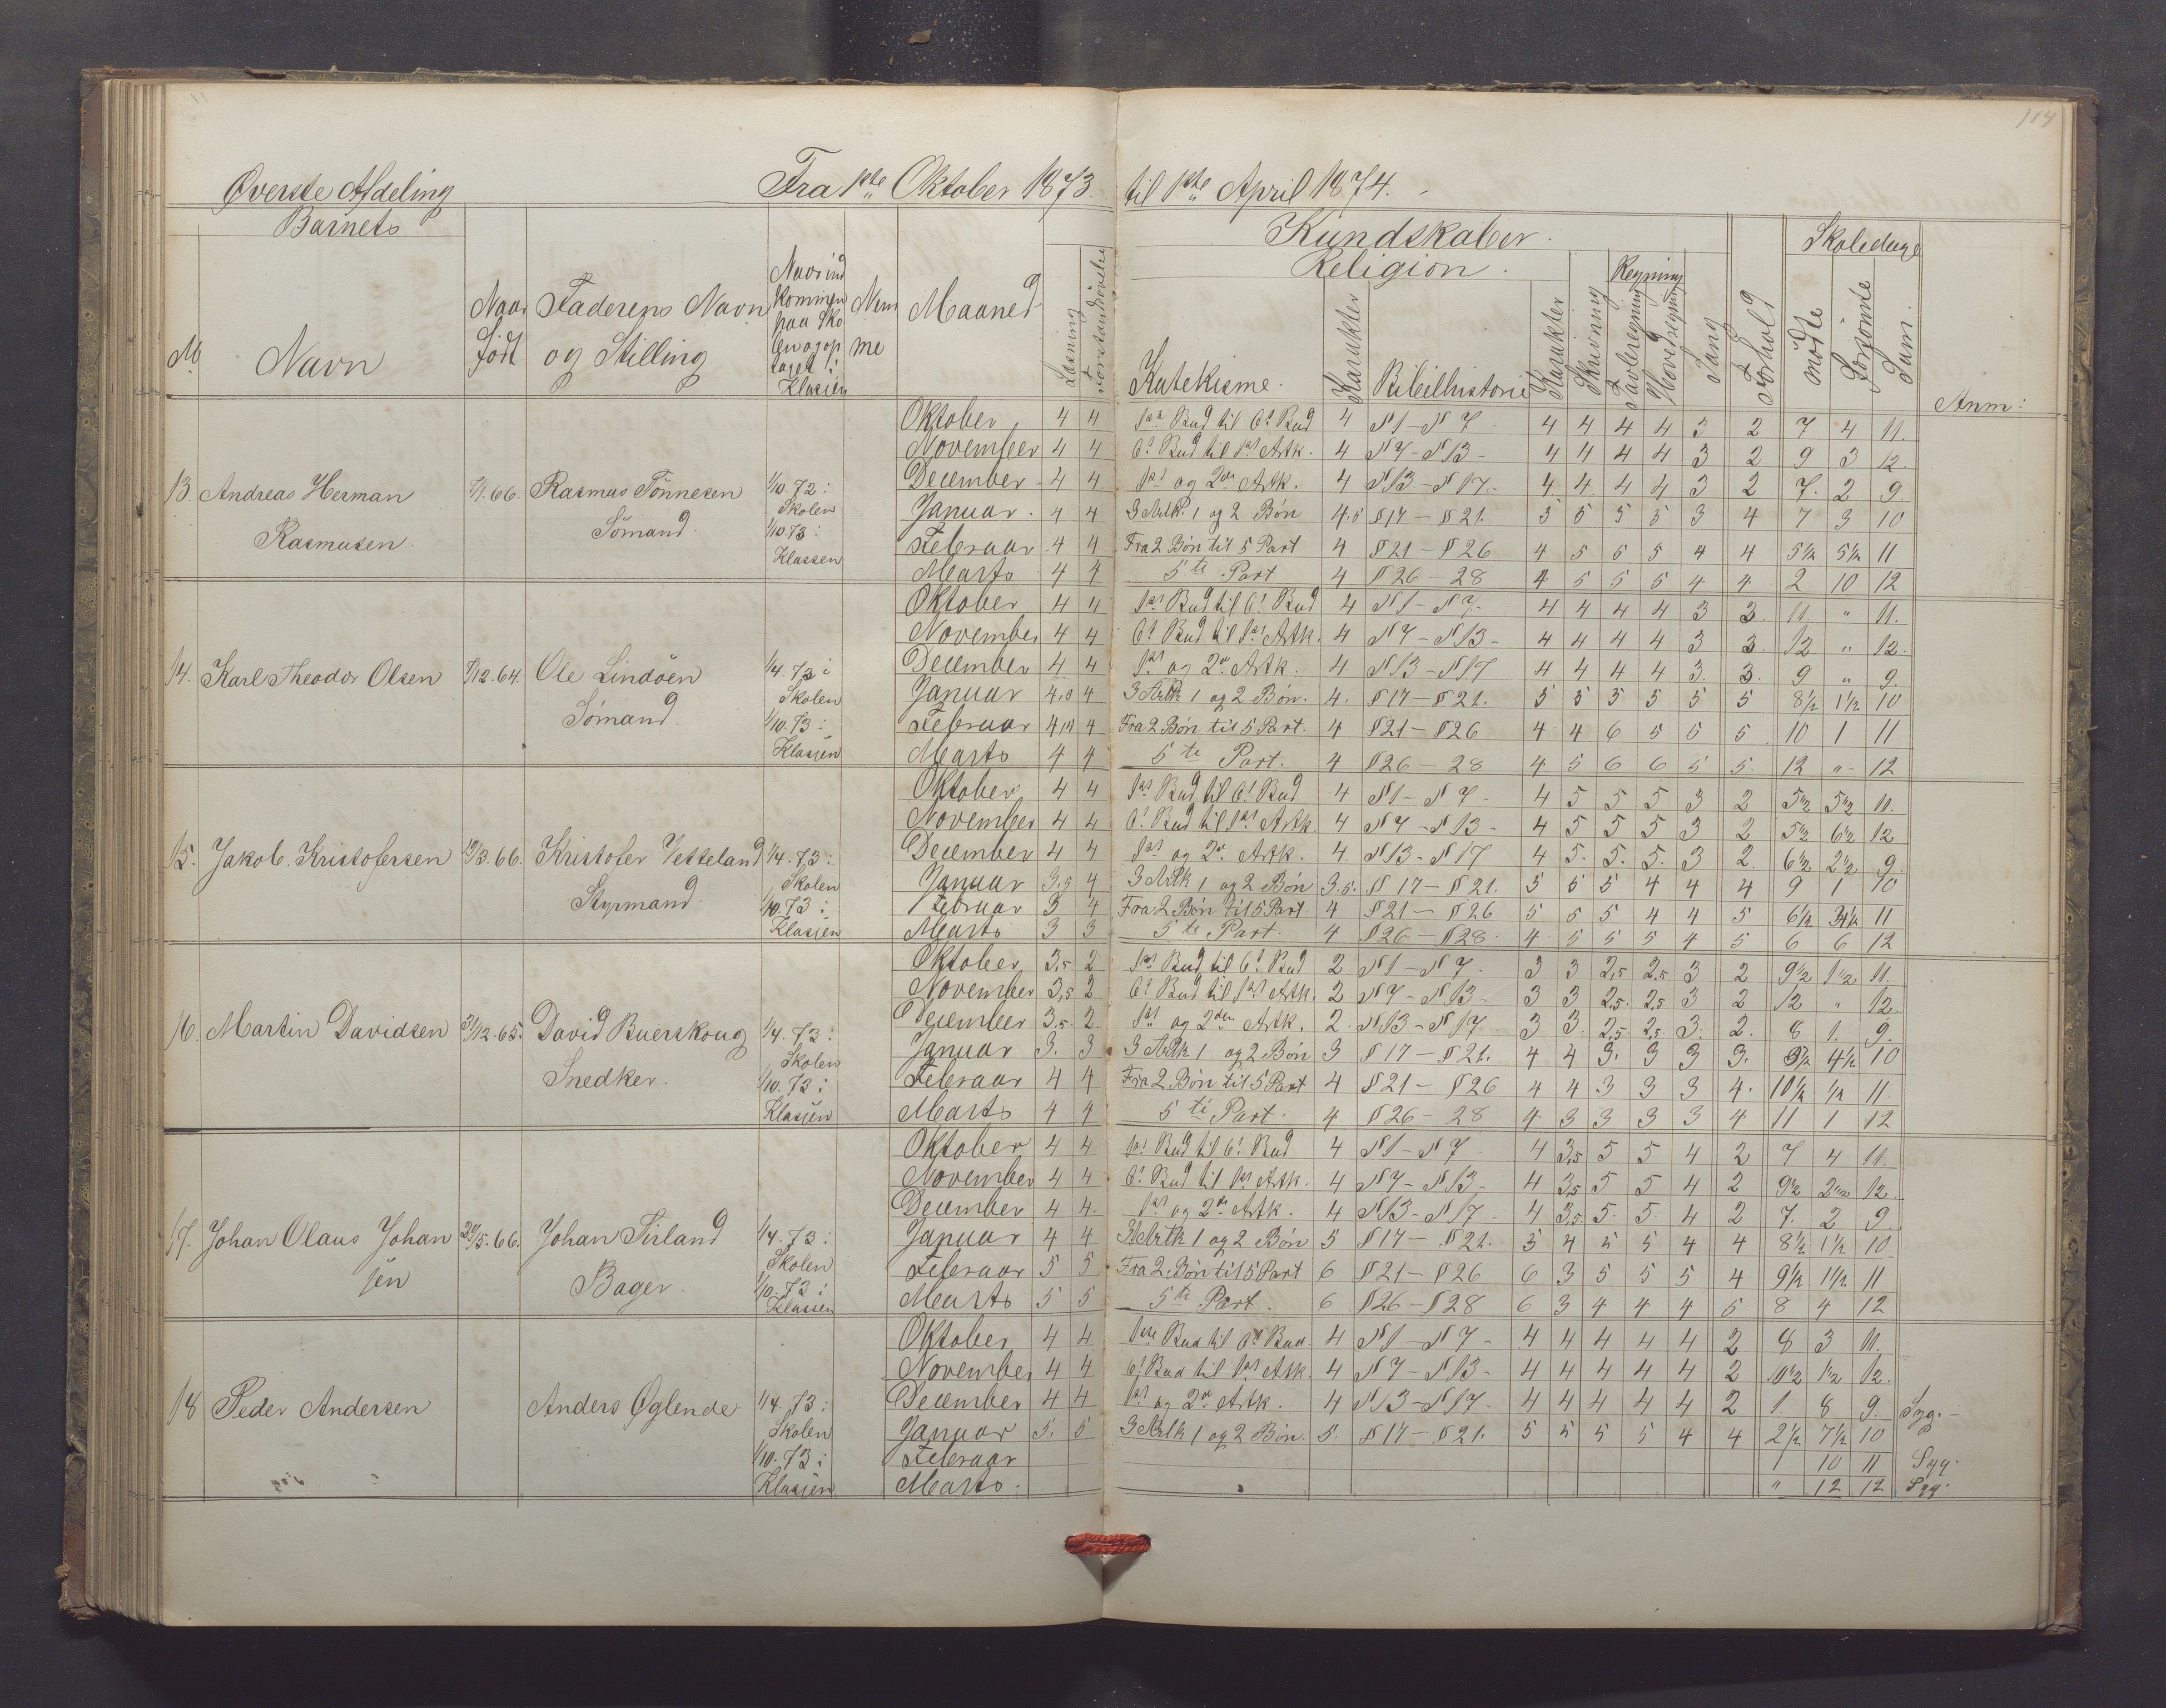 Øverste Afdeling Fra 1ste Oktober 1873 til 1ste April 1874.
Barnets Kundskaber. Skoledage
Religion. Regning
No Navn Naar født Faderens Navn og Stilling Naar ind kommen paa Sko len og op taget i Klassen Maaned Læsning Forstandsøvelse Katekisme. Karakter Bibelhistorie Karakter Skrivning Tavleregning Hovedregning Sang Forhold mødte Forsømte Sum. Anm:
Oktober 4 4 1ste Bud til 6t Bud 4 №1-№7 4 4 4 4 3 2 7 4 11.
November 4 4 6t Bud til 1st Artk. 4 №7-№13- 4 4 4 4 3 2 9 3 12.
13. Andreas Herman 1/1.66. Rasmus Tönnesen 1/10.72 i December 4 4 1st og 2den Artk. 4 №13-№17. 4 4 4 4 3 2 7. 2 9
Skolen Januar. 4 4 3 Artk. 1 og 2 Bön 4.5 §17-§21. 5 5 5 5 3 4 7 3 10
Rasmusen. Sömand. 1/10.73 i Februar 4 4 Fra 2 Bön til 5 Part 4 §21-§26 4 5 5 5 4 4 5½ 5½ 11
Klassen Marts 4 4 5te Part 4 §26-28 4 5 5 5 4 4 2 10 12
Oktober 4 4 1st Bud til 6t Bud 4 №1-№7- 4 4 4 4 3 3. 11. " 11.
November 4 4 6t Bud til 1st Artk. 4 №7-№13- 4 4 4 4 3 3. 12 " 12.
14. Karl Theodor Olsen /12.64. Ole Lindöen 1/4.72 i December 4 4 1st og 2den Artk. 4. №13-№17 4 4 4 4 3. 3. 9 " 9.
Skolen Januar 4,5 4 3 Artk 1 og 2 Bön. 4. §17-§21. 5 5 5 5 5 5 8½ 1½ 10
Sömand 1/10.73 i Februar 4 Fra 2 Bön til 5 Part. 4 §21-§26 4 4 6 5 5 5 10 1 11
Klassen Marts 4 4 5te Part. 4 §26-28 4 5 6 6 5 5. 12 " 12
Oktober 4 4 1st Bud til 6t Bud 4 №1-№7- 4 5 5 5 3 2 5½ 5½ 11.
November 4 4 6t Bud til 1st Artk. 4 №7-№13- 4 5 5 5 3 2 5½ 6½ 12
15. Jakob Kristofersen /3.66. Kristofer Vetteland 1/4.73 i December 4 4 1st og 2den Artk. 4. №13-№17 4 5. 5. 5. 3 2. 6½ 2½ 9.
Skolen Januar 3.5 4 3 Artk 1 og 2 Bön 3.5. §17-§21. 5 5 5 4 4 4 9 1 10
Styrmand. 1/10.73 i Februar 3 4 Fra 2 Bön til 5 Part 4 §21-§26 5 5 5 4 4 5 6½ 4½ 11
Klassen Marts 3 3 5te Part. 4 §26-§28. 4 5 5 5 4 5 6 6 12
Oktober 3,5 2 1st Bud til 6t Bud 2 №1-№7- 3 3 2,5 2,5 3 2 9½ 1½ 11.
November 3,5 2 6t Bud til 1st Artk. 2 №7-№13- 3 3 2,5. 2,5 3 2 12 " 12.
16. Martin Davidsen 31/12.65. David Buerskoug 1/4.73 i December 3,5. 2. 1st og 2den Artk. 2. №13-№17 3 3. 2,5. 2,5. 3. 2. 8 1. 9.
Skolen Januar 3. 3 3 Artk 1 og 2 Bön 3 §17-§21. 4 4 3. 3 3 3. 5½ 4½ 10
Snedker. 1/10.73 i Februar 4 4 Fra 2 Bön til 5 Part 4 §21-§26 4 4 3 3 3 4. 10½ ½ 11.
Klassen Marts 4 4 5te Part. 4 §26-28 4 3 3 3 3 4 11 1 12
Oktober 4 4 1st Bud til 6t Bud 4 №1-№7 4 3,5 5 5 4 2 7 4 11.
November 4 4 6t Bud til 1st Artk. 4 №7-№13- 4 3,5 5 5 4 2 9½ 2½ 12
17. Johan Olaus Johan 29/5.66. Johan Tirland 1/4.73 i December 4 4. 1st og 2den Artk. 4 №13-№17- 4 3,5. 5. 5. 4 2 7. 2 9
Skolen Januar 4 4 3 Artk 1 og 2 Bön 5 §17-§21. 5 4 5 5 4 4 8½ 1½ 10
sen Bager. 1/10.73 i Februar 5 5 Fra 2 Bön til 5 Part 6 §21-§26 6 3 5 5 5 4 9½ 1½ 11
Klassen Marts 5 5 5te Part. 6 §26-§28 6 3 4 4 4 5 8 4 12
Oktober 4 4 1ste Bud til 6t Bud. 4 №1-№7- 4 4 4 4 4 2 8 3 11.
November 4 4 6t Bud til 1st Artk. 4 №7-№13- 4 4 4 4 4 2 10½ 1½ 12.
18 Peder Andersen Anders Øglende 1/4.73 i December 4 4 1st og 2den Artk. 4 №13-№17- 4 4 4 4 4 2 1. 8 9. Syg.-
Skolen Januar 5. 5 3 Artk 1 og 2 Bön. 5. §17-§21. 5 5 5 5 4 4 2½ 7½ 10
1/10.73 i Februar 1 10 11 Syg.
Klassen Marts. " 12 12 Syg.